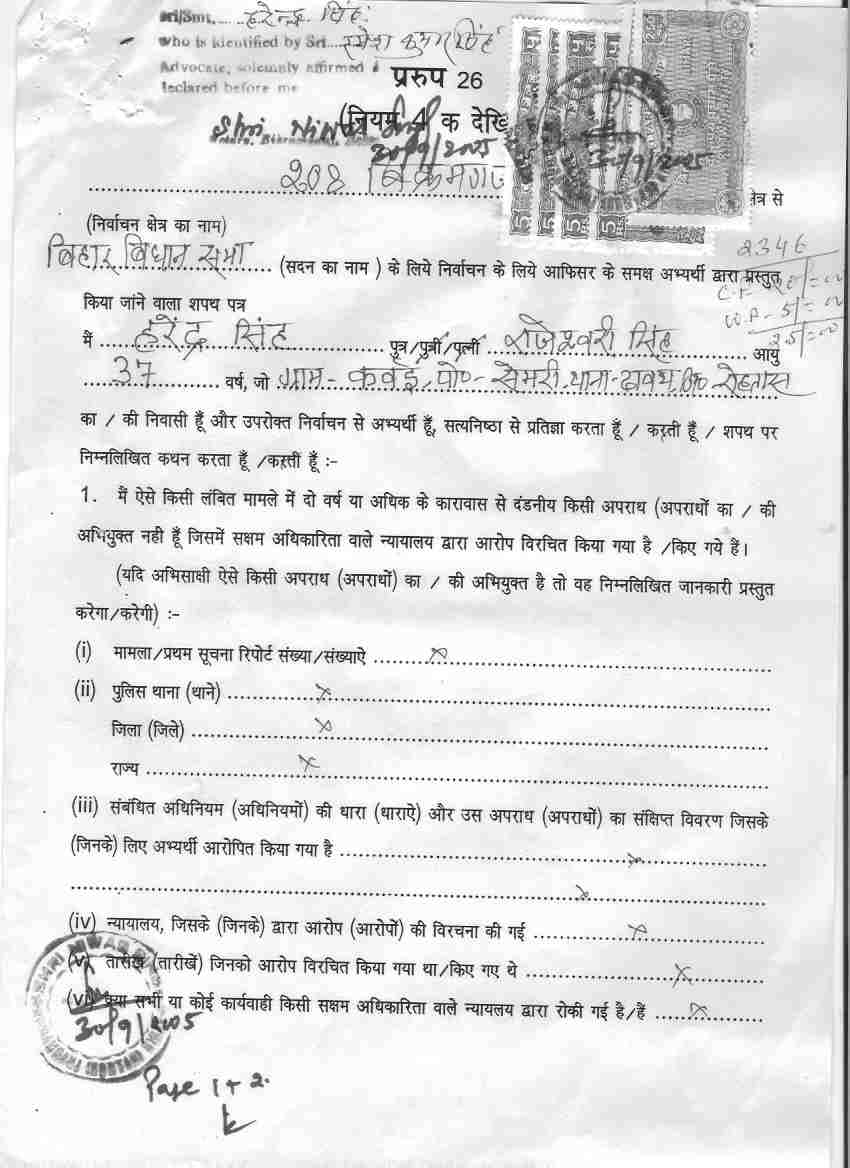 Sri/Smt. ..... हरेन्द्र सिंह
who is identified by Sri.... रमेश कुमार सिंह
Advocate, solemnly affirmed
declared before me
प्ररुप 26
(नियम 4 क देखि
Shri Niwas
30/9/2005
30/9/2005
208 बिक्रमगंज
क्षेत्र से
(निर्वाचन क्षेत्र का नाम)
2346
बिहार विधान सभा (सदन का नाम ) के लिये निर्वाचन के लिये आफिसर के समक्ष अभ्यर्थी द्वारा प्रस्तुत
किया जांने वाला शपथ पत्र
मैं हरेंद्र सिंह पुत्र/पुत्री/पत्नी राजेश्वरी सिंह आयु
37 वर्ष, जो ग्राम- कवई, पो०- सेमरी थाना- दावथ जि० रोहतास
का / की निवासी हूँ और उपरोक्त निर्वाचन से अभ्यर्थी हूँ, सत्यनिष्ठा से प्रतिज्ञा करता हूँ / करती हूँ / शपथ पर
निम्नलिखित कथन करता हूँ /करती हूँ :-
1. मैं ऐसे किसी लंबित मामले में दो वर्ष या अधिक के कारावास से दंडनीय किसी अपराध (अपराधों का / की
अभियुक्त नही हूँ जिसमें सक्षम अधिकारिता वाले न्यायालय द्वारा आरोप विरचित किया गया है /किए गये हैं।
(यदि अभिसाक्षी ऐसे किसी अपराध (अपराधों) का / की अभियुक्त है तो वह निम्नलिखित जानकारी प्रस्तुत
करेगा/करेगी) :-
(i) मामला/प्रथम सूचना रिपोर्ट संख्या/संख्याऐ ..... x
(ii) पुलिस थाना (थाने) ..... x
जिला (जिले) ..... x
राज्य ..... x
(iii) संबंधित अधिनियम (अधिनियमों) की धारा (धाराऐ) और उस अपराध (अपराधों) का संक्षिप्त विवरण जिसके
(जिनके) लिए अभ्यर्थी आरोपित किया गया है ..... x
..... x
(iv) न्यायालय, जिसके (जिनके) द्वारा आरोप (आरोपों) की विरचना की गई ..... x
(v) तारीख (तारीखें) जिनको आरोप विरचित किया गया था/किए गए थे ..... x
(vi) क्या सभी या कोई कार्यवाही किसी सक्षम अधिकारिता वाले न्यायलय द्वारा रोकी गई है/हैं ..... x
30/9/2005
Page 1 + 2.